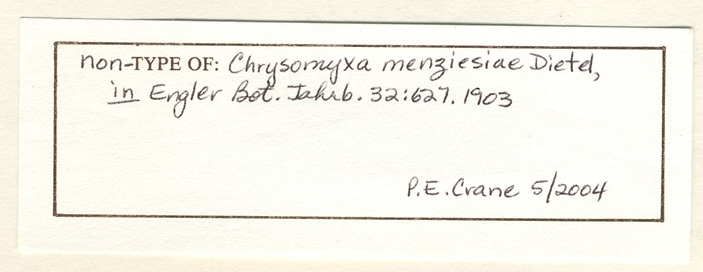 non-TYPE OF: Chrysomyxa menziesiae Dietel,
in Engler Bot. Jahrb. 32:627. 1903
P.E. Crane 5/2004